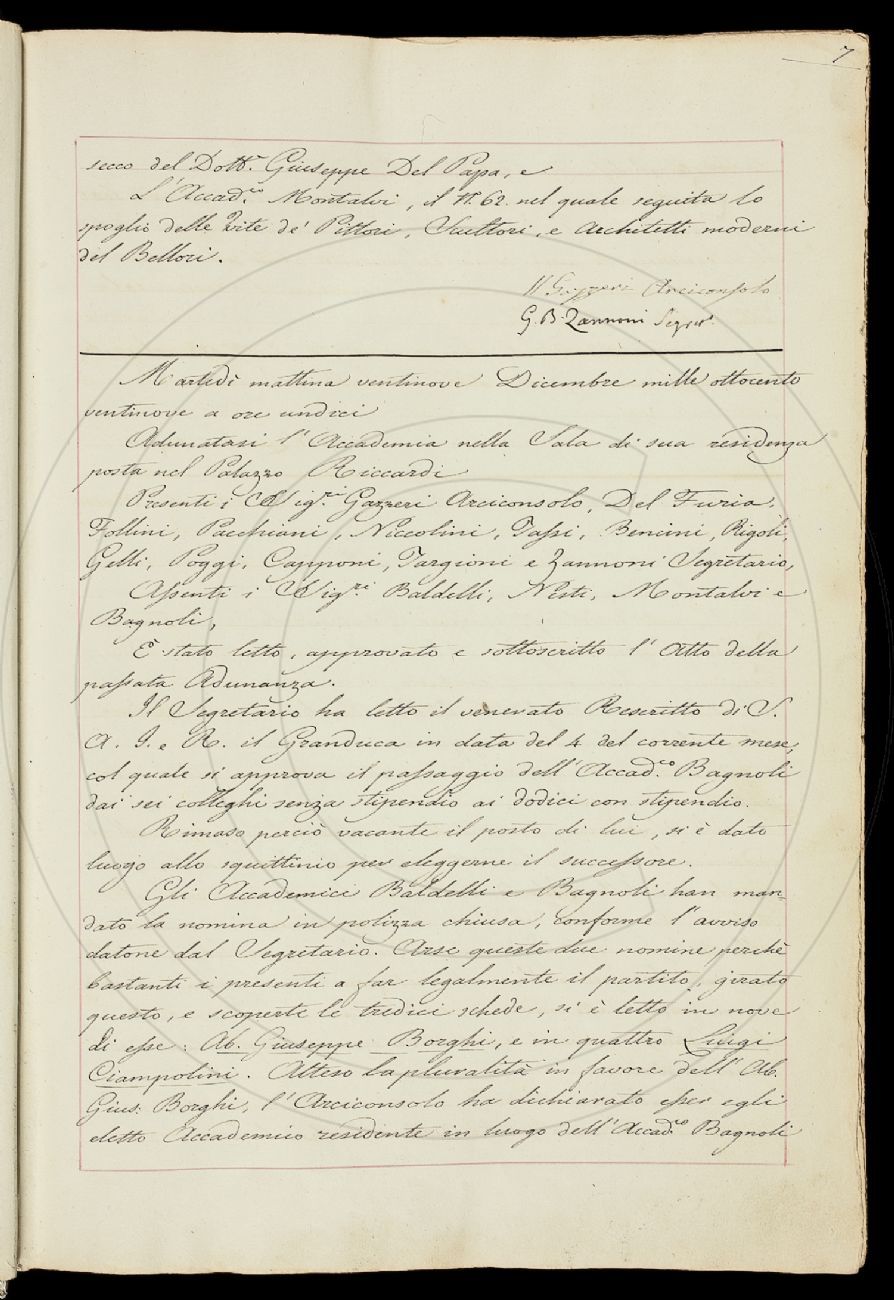 7
secco del Dott.r Giuseppe Del Papa, e
L'Accad.co Montalvi, il N. 62. nel quale seguita lo
spoglio delle Vite de' Pittori, Scultori, e Architetti moderni
del Bellori.
Gazzeri Arciconsolo
G. B. Zannoni Segret.
Martedì mattina ventinove Dicembre mille ottocento
ventinove a ore undici
Adunatasi l'Accademia nella Sala di sua residenza
posta nel Palazzo Riccardi
Presenti i Sig.ri Gazzeri Arciconsolo, Del Furia,
Follini, Pacchiani, Niccolini, Tassi, Bencini, Rigoli,
Gelli, Poggi, Capponi, Targioni e Zannoni Segretario,
Assenti i Sig.ri Baldelli, Nesti, Montalvi e
Bagnoli,
È stato letto, approvato e sottoscritto l'Atto della
passata Adunanza.
Il Segretario ha letto il venerato Rescritto di S.
A. I. e R. il Granduca in data del 4 del corrente mese,
col quale si approva il passaggio dell'Accad.co Bagnoli
dai sei colleghi senza stipendio ai dodici con stipendio.
Rimaso perciò vacante il posto di lui, si è dato
luogo allo squittinio per eleggerne il successore.
Gli Accademici Baldelli e Bagnoli han man=
dato la nomina in polizza chiusa, conforme l'avviso
datone dal Segretario. Arse queste due nomine perchè
bastanti i presenti a far legalmente il partito, girato
questo, e scoperte le tredici schede, si è letto in nove
di esse: Ab. Giuseppe Borghi, e in quattro Luigi
Ciampolini. Atteso la pluralità in favore dell'Ab.
Gius. Borghi, l'Arciconsolo ha dichiarato esser egli
eletto Accademico residente in luogo dell'Accad.co Bagnoli